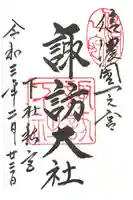 信濃國一之宮
諏訪大社
下社秋宮
令和三年二月廿三日